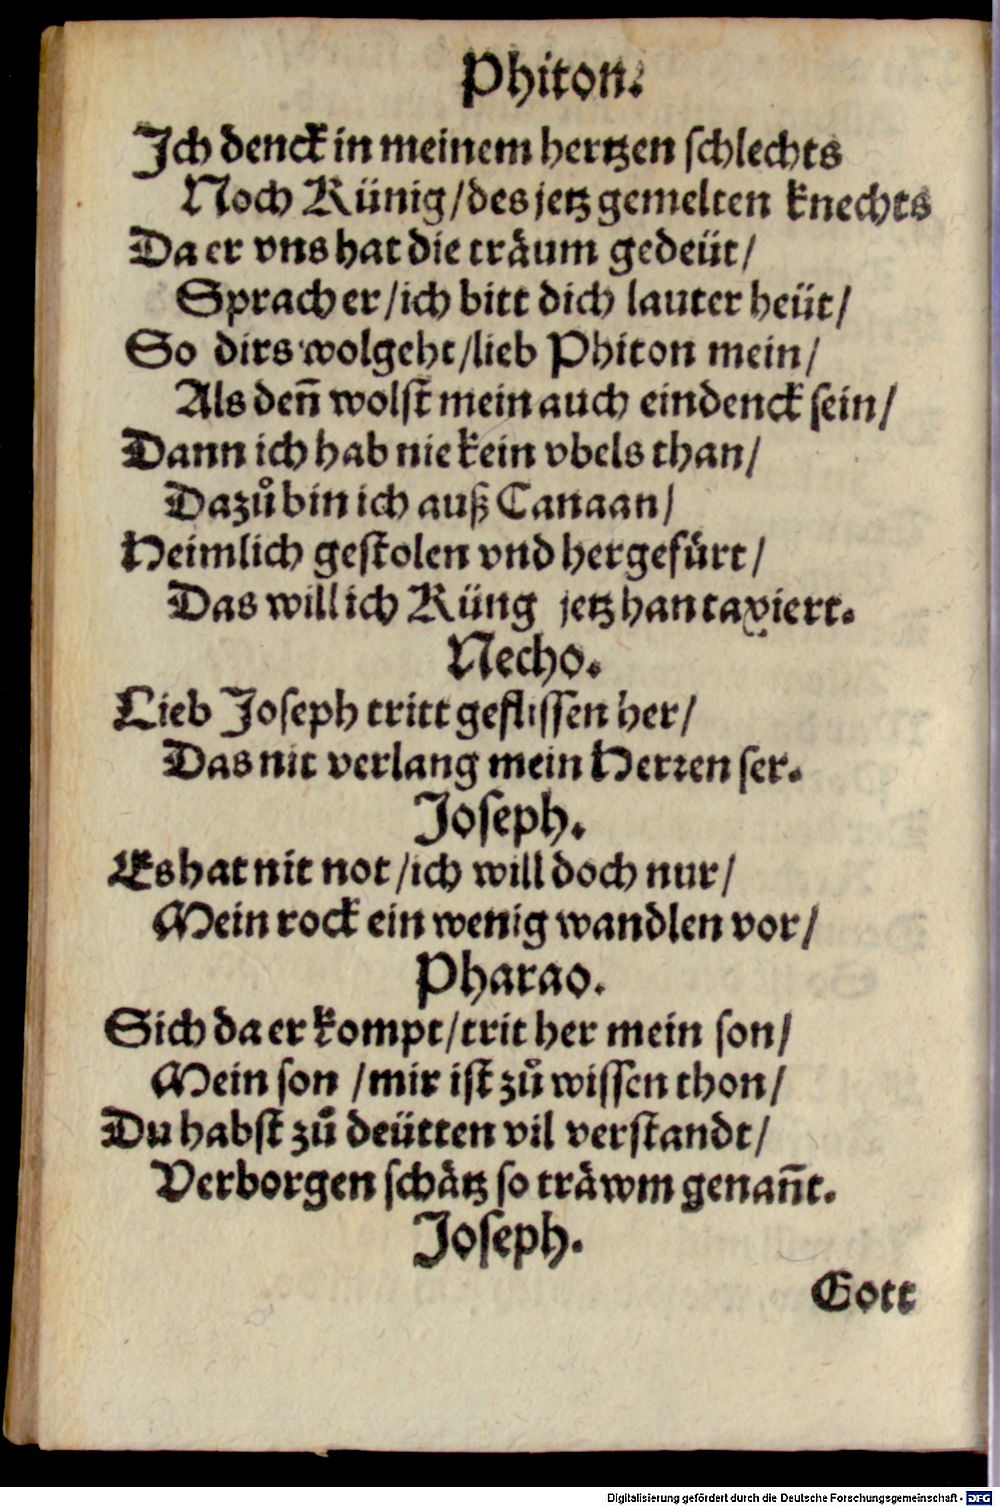 Phiton.
Ich denck in meinem hertzen ſchlechts
Noch Künig/ des jetz gemelten knechts
Da er vns hat die träum gedeüt/
Sprach er/ ich bitt dich lauter heüt/
So dirs wolgeht/ lieb Phiton mein/
Als den̄ wolſt mein auch eindenck ſein/
Dann ich hab nie kein vbels than/
Dazuͦ bin ich auß Canaan/
Heimlich geſtolen vnd hergefuͤrt/
Das will ich Küng jetz han taxiert.
Necho.
Lieb Joſeph tritt gefliſſen her/
Das nit verlang mein Herꝛen ſer.
Joſeph.
Es hat nit not/ ich will doch nur/
Mein rock ein wenig wandlen vor/
Pharao.
Sich da er kompt/ trit her mein ſon/
Mein ſon / mir iſt zuͦ wiſſen thon/
Du habſt zuͦ deütten vil verſtandt/
Verborgen ſchätz ſo träwm genan̄t.
Joſeph.
Gott
Digitalisierung gefördert durch die Deutsche Forschungsgemeinschaft - DFG